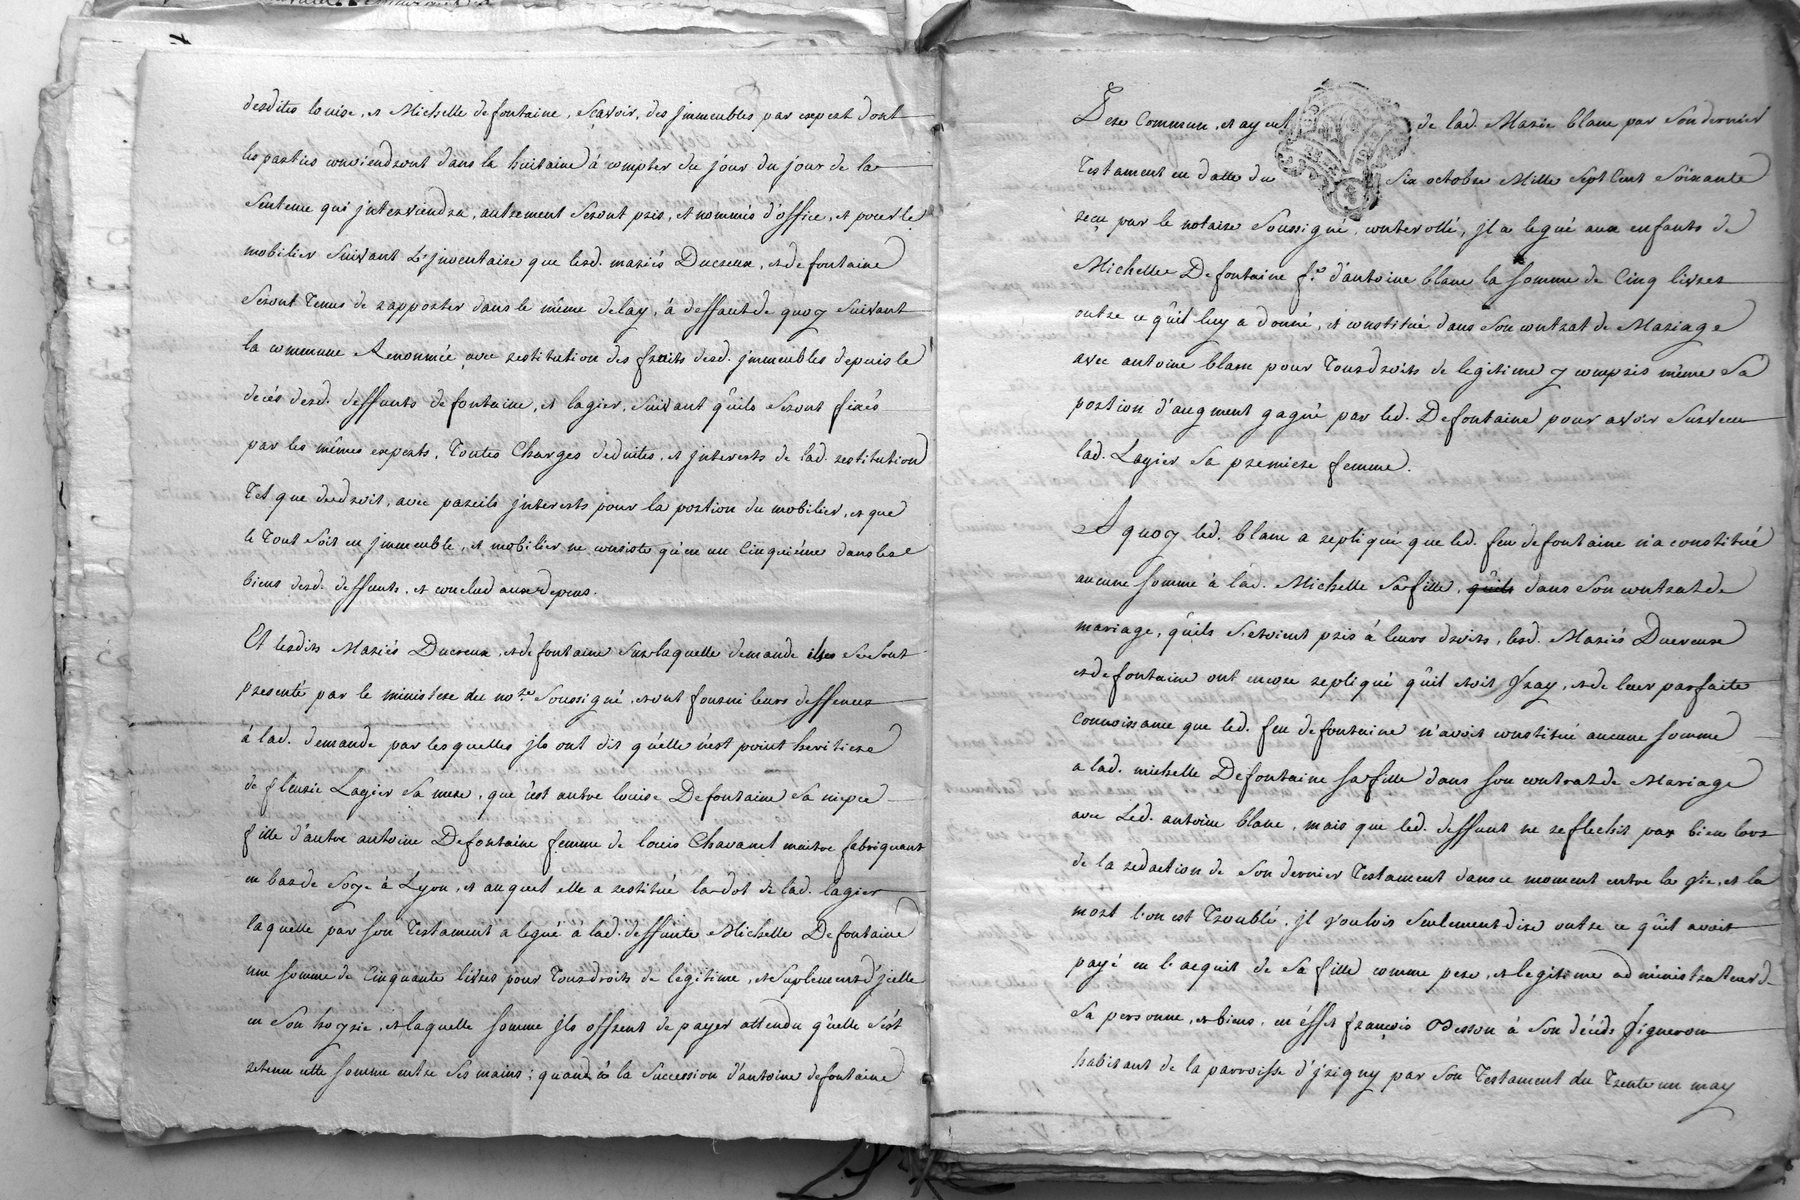 desdites louise, et Michelle defontaine, sçavoir, des jmmeubles par expert dont
les parties conviendront dans la huitaine à compter du jour du jour de la
Sentence qui jnterviendra, autrement Seront pris, et nommés d'office, et pour le
mobilier Suivant L'jnventaire que lesd. mariés Ducreux, et defontaine
Seront Tenus de rapporter dans le même delay, à deffaut de quoy Suivant
la commune Renommée avec restitution des fruits desd. jmmeubles depuis le
décés desd. deffunts defontaine, et lagier, Suivant qu'ils Seront fixés
par les mêmes experts, Toutes Charges déduites, et jnterests de lad. restitution
Tel que de droit, avec pareils jnterests pour la portion du mobilier, et que
le Tout Soit en jmmeuble, et mobilier ne consiste qu'en un Cinquiéme dans les
biens desd. deffunts, et conclud aux depens.
Et lesdits Mariés Ducreux, et defontaine Sur laquelle demande Se Sont
presenté par le ministere du no.re Soussigné, et ont fourni leurs deffences
à lad. demande par lesquelles jls ont dit qu'elle n'est point heritiere
de fleurie Lagier Sa mere, que c'est autre louise Defontaine Sa niepce
fille d'autre antoine Defontaine femme de louis Chavanet maitre fabriquant
en bas de Soye à Lyon, et auquel elle a restitué la dot de lad. lagier
laquelle par Son Testament a legué à lad. deffunte Michelle Defontaine
une Somme de Cinquante livres pour Tous droits de légitime, et Suplement d'jcelle
en Son hoyrie, et laquelle Somme jls offrent de payer attendu qu'elle S'est
retenu cette Somme entre Ses mains; quand à la Succession d'antoine defontaine
Pere Commun, et ayeul de lad. Marie blanc par Son dernier
Testament en datte du Six octobre Mille Sept Cent Soixante
reçu par le notaire Soussigné, controllé, jl a legué aux enfants de
Michelle Defontaine f.e d'antoine blanc la Somme de Cinq livres
outre ce qu'il luy a donné, et constitué dans Son contrat de Mariage
avec antoine blanc pour Tous droits de legitime y compris même Sa
portion d'augment gagné par led. Defontaine pour avoir Survecu
lad. Lagier Sa premiere femme.
A quoy led. blanc a repliqué que led. feu defontaine n'a constitué
aucune Somme à lad. Michelle Sa fille, qu'ils dans Son contrat de
mariage, qu'ils S'etoient pris à leurs droits, lesd. Mariés Ducreux
et defontaine ont encore repliqué qu'il etoit Vray, et de leur parfaite
Connoissance que led. feu defontaine n'avoit constitué aucune Somme
a lad. michelle Defontaine Sa fille dans Son contrat de Mariage
avec Led. antoine blanc, mais que led. deffunt ne reflechit pas bien lors
de la redaction de Son dernier Testament dans ce moment entre la Vie, et la
mort l'on est Troublé, jl Vouloit Seulement dire outre ce qu'il avoit
payé en l'acquit de Sa fille comme pere, et legitime administrateur de
Sa personne, et biens, en effet françois à Son décéds Vigneron
habitant de la parroisse d'jrigny par Son Testament du Trente un may